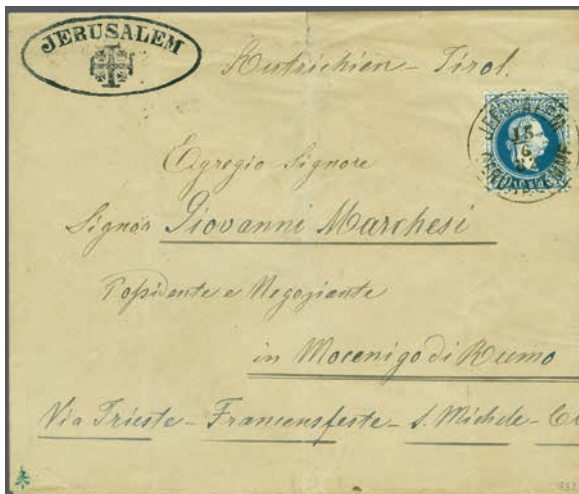 JERUSALEM
Austrichien - Tirol.
JERUSALEM
15
6
GERUSALEMME
Egregio Signore
Signor Giovanni Marchesi
Possidente e Negoziante
in Mocenigo di Rumo
Via Trieste - Francensfeste - S. Michele -